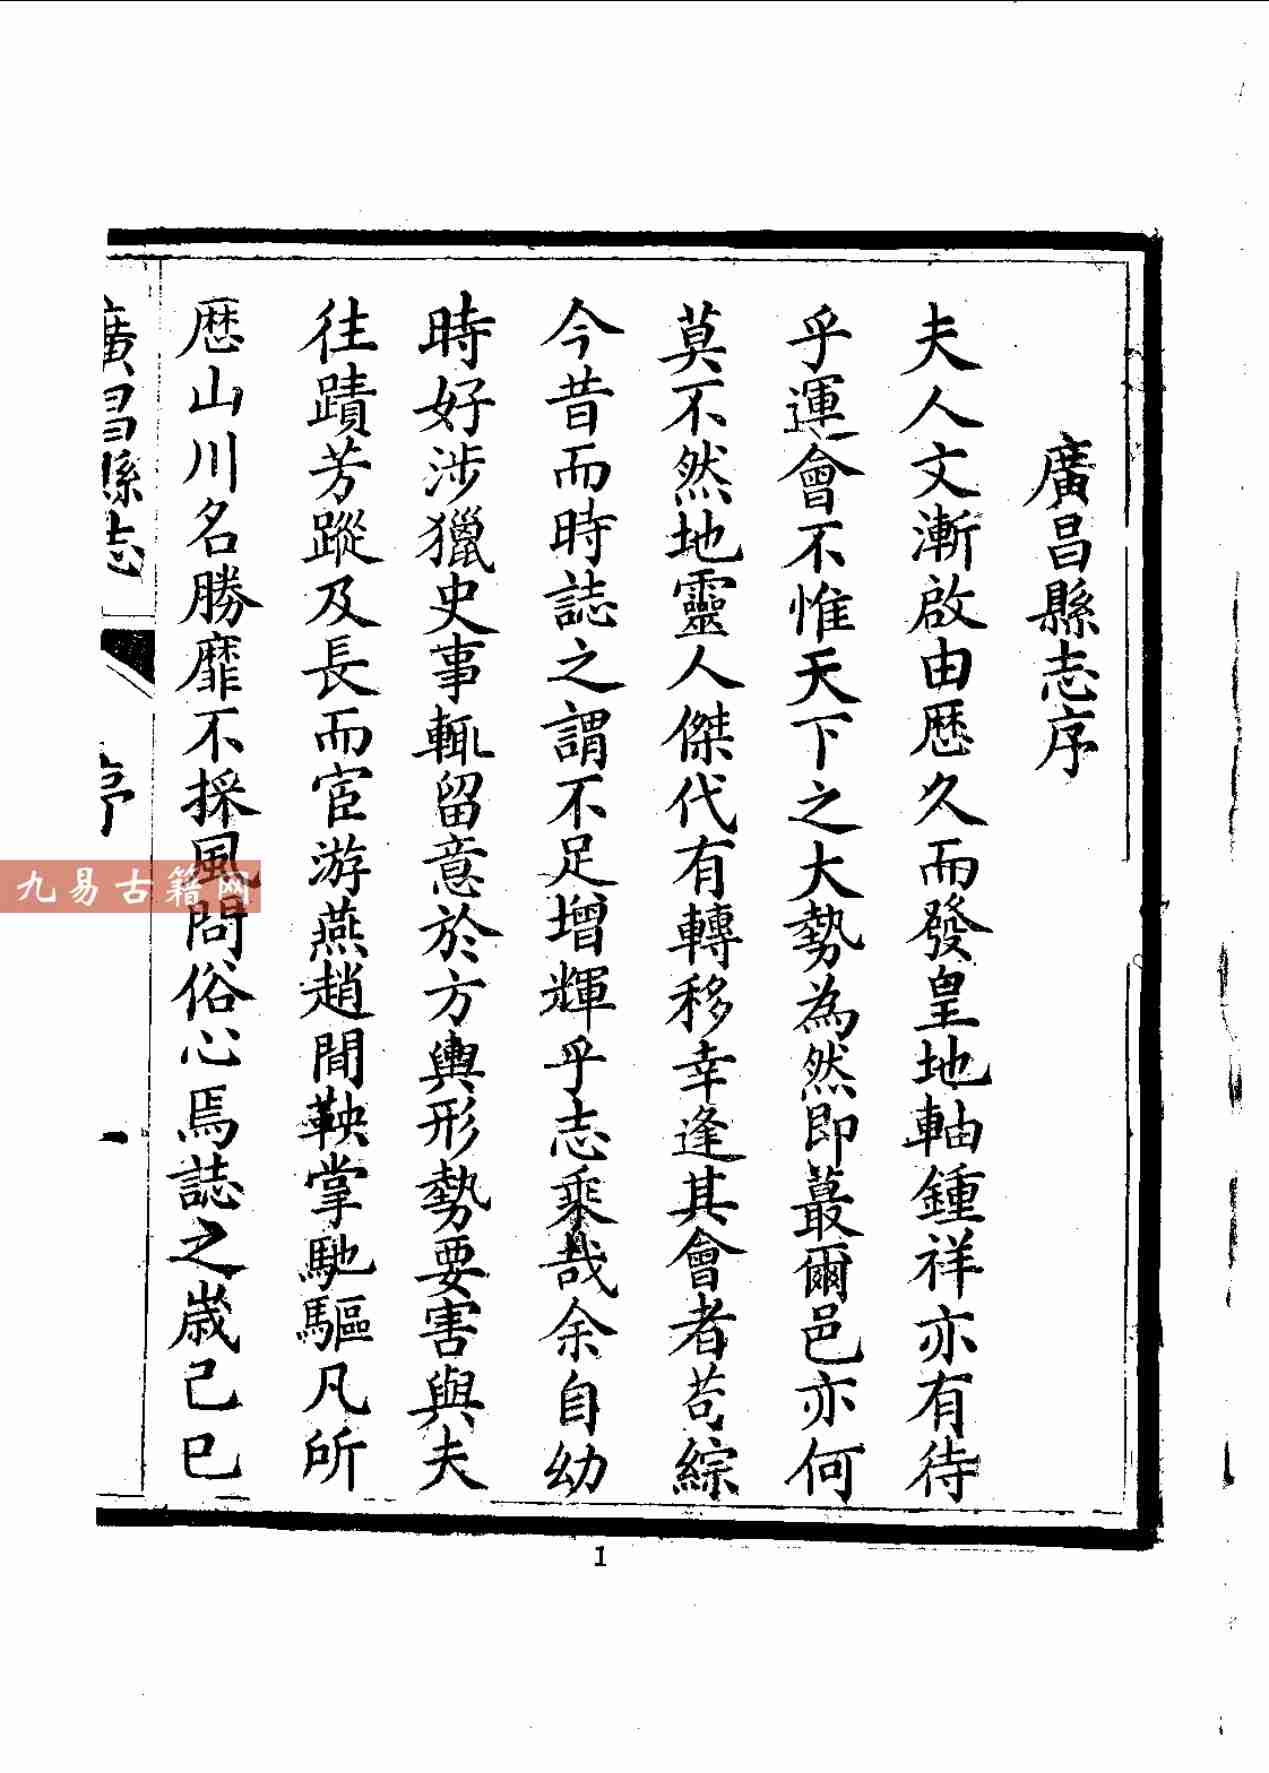 廣昌縣志序
夫人文漸啟由歴久而發皇地軸鍾祥亦有待
乎運會不惟天下之大勢為然即蕞爾邑亦何
莫不然地靈人傑代有轉移幸逢其會者苟綜
今昔而時誌之謂不足增輝乎志乘哉余自幼
時好涉獵史事輒留意於方輿形勢要害與夫
往蹟芳蹤及長而宦游燕趙間鞅掌馳驅凡所
歴山川名勝靡不採風問俗心焉誌之歲己巳
廣昌縣志
序
一
九易古籍网
1